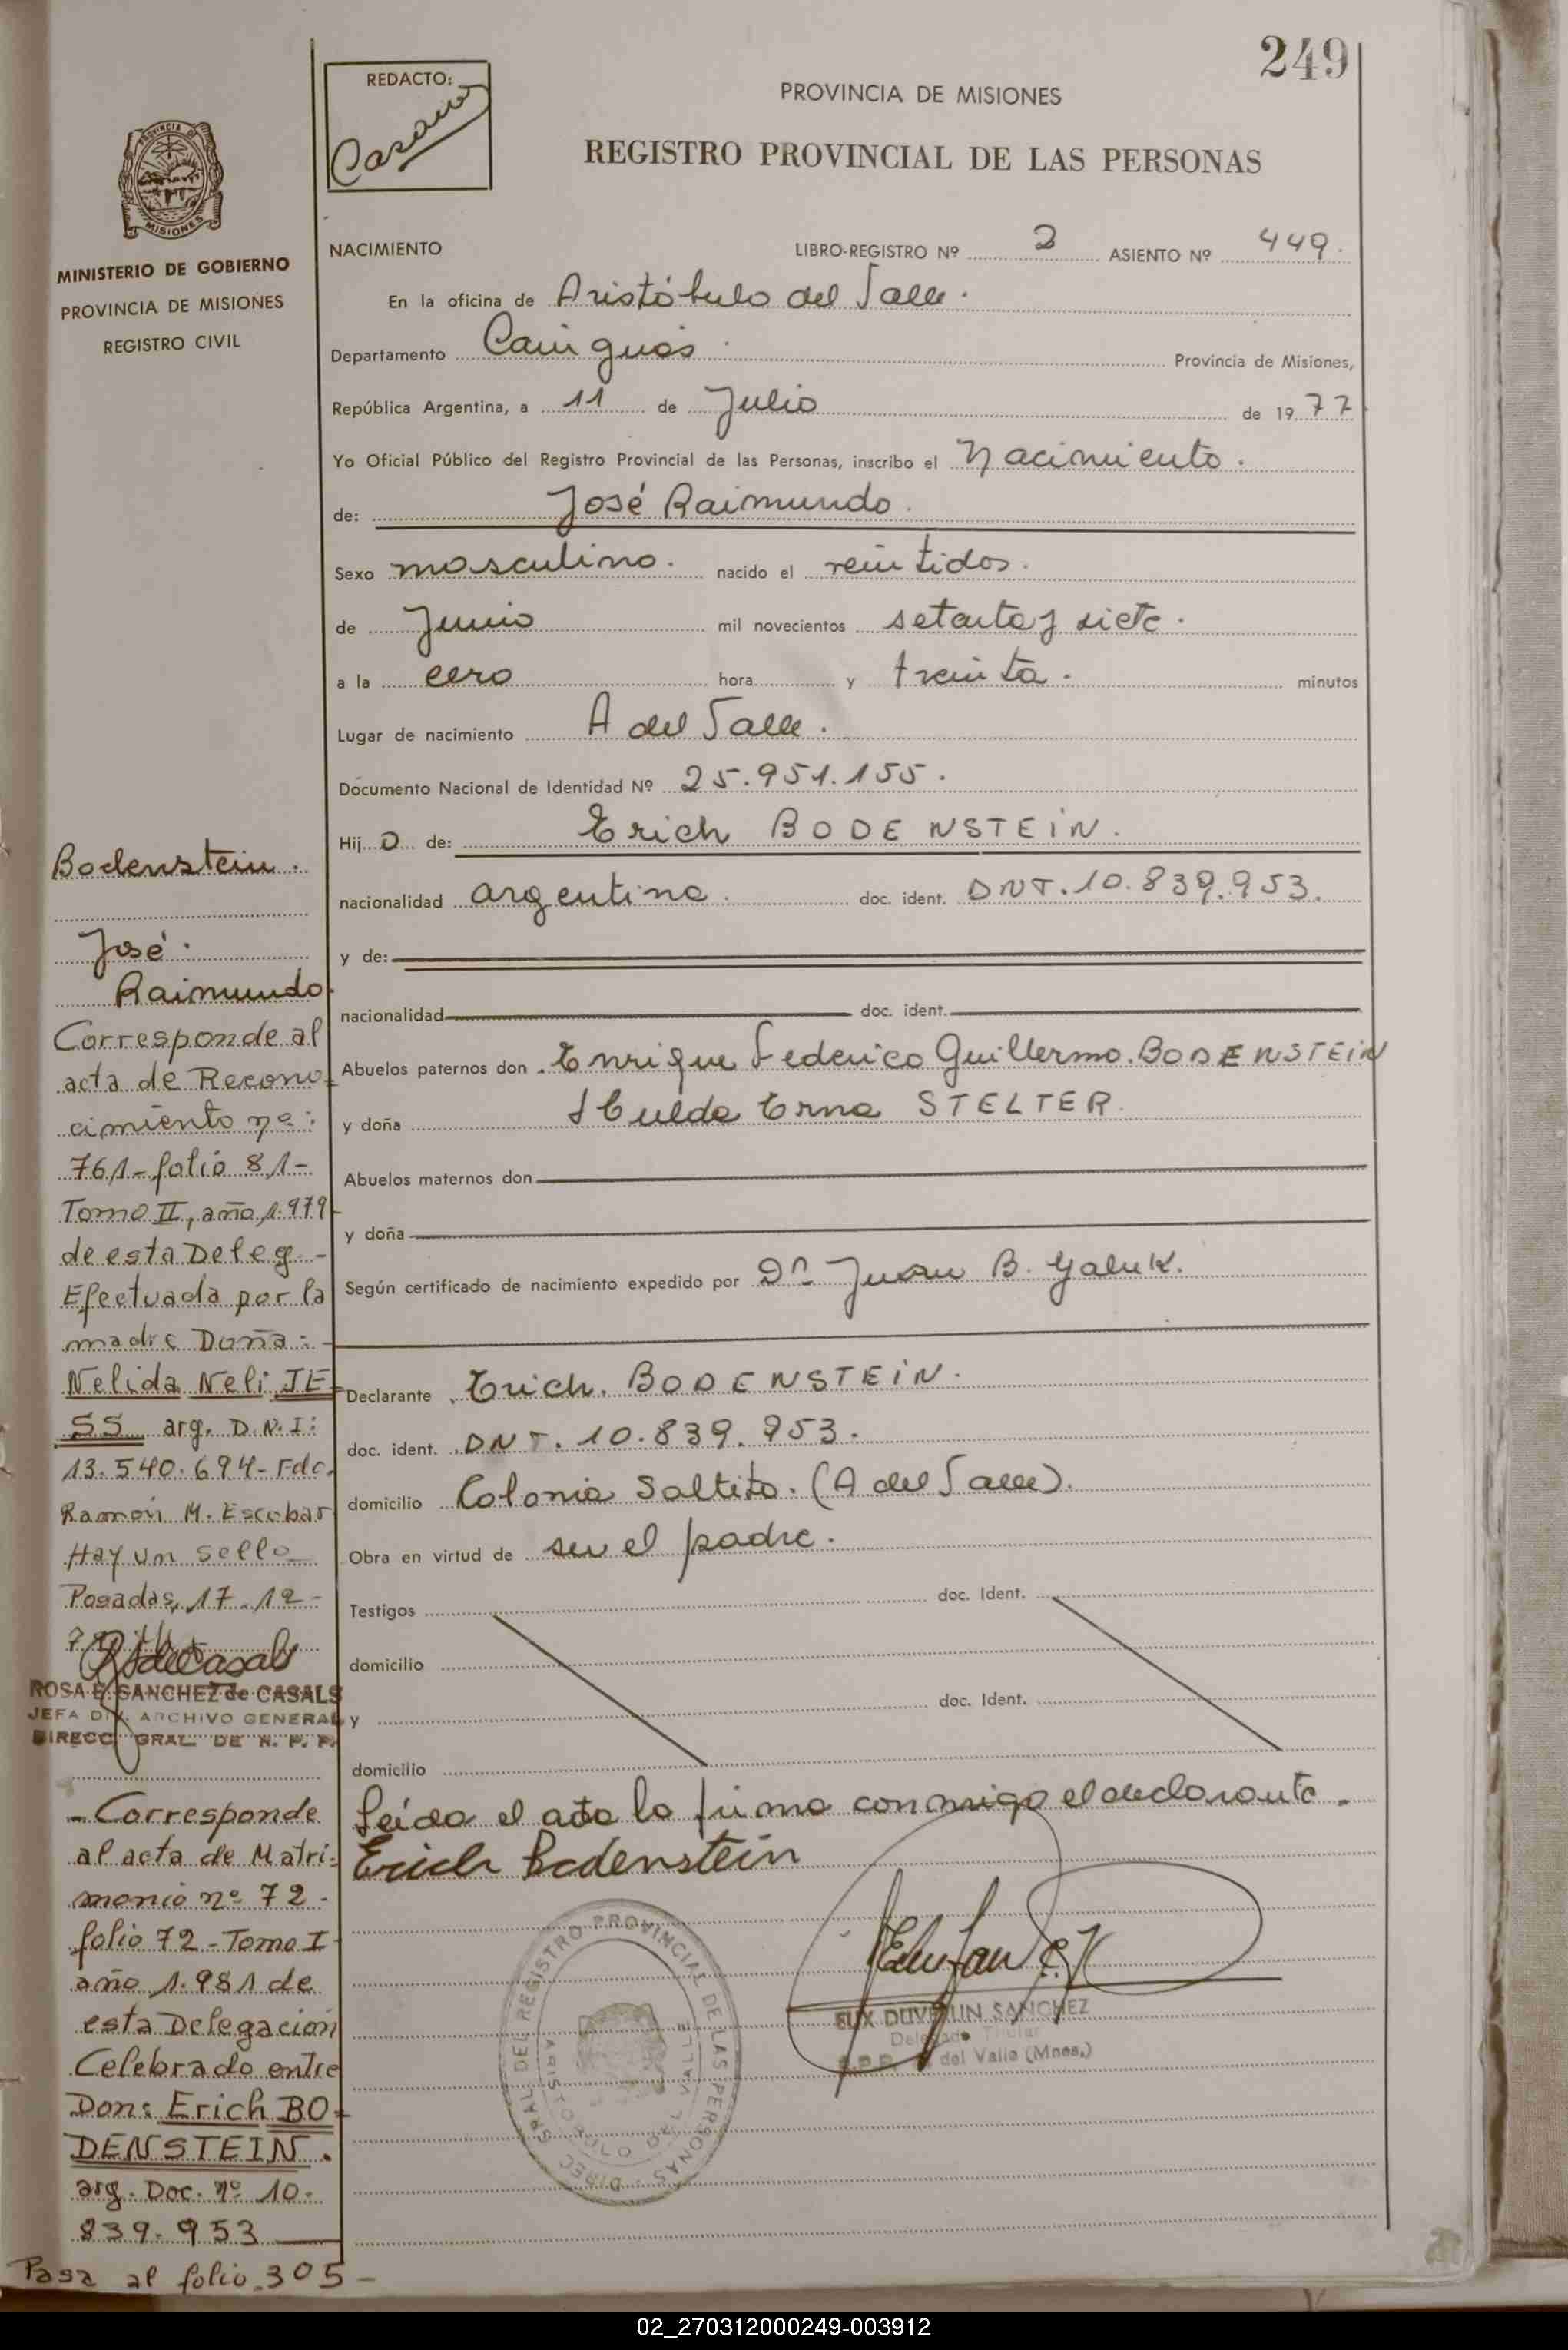 249
REDACTO:
PROVINCIA DE MISIONES
REGISTRO PROVINCIAL DE LAS PERSONAS
MISIONES
MINISTERIO DE GOBIERNO
PROVINCIA DE MISIONES
REGISTRO CIVIL
NACIMIENTO LIBRO-REGISTRO Nº 2 ASIENTO Nº 449.
En la oficina de Aristóbulo del Valle.
Departamento Cainguás Provincia de Misiones,
República Argentina, a 11 de Julio de 1977
Yo Oficial Público del Registro Provincial de las Personas, inscribo el Nacimiento.
de: José Raimundo.
Sexo masculino. nacido el veintidos.
de Junio mil novecientos setenta y siete.
a la cero hora y treinta. minutos
Lugar de nacimiento A del Valle.
Documento Nacional de Identidad Nº 25.951.155.
Hijo de: Erich BODENSTEIN.
nacionalidad argentina. doc. ident. DNT. 10.839.953.
y de:
nacionalidad doc. ident.
Abuelos paternos don Enrique Federico Guillermo. BODENSTEIN
y doña Hulda Erna STELTER.
Abuelos maternos don
y doña
Según certificado de nacimiento expedido por Dr. Juan B. Galuk.
Declarante Erich. BODENSTEIN.
doc. ident. DNT. 10.839.953.
domicilio Colonia Saltito. (A del Valle).
Obra en virtud de ser el padre.
Testigos doc. Ident.
domicilio
y doc. Ident.
domicilio
Leída el acta la firma conmigo el declarante.
Erich Bodenstein
DIREC. GRAL. DEL REGISTRO PROVINCIAL DE LAS PERSONAS
ARISTOBULO DEL VALLE
SANCHEZ
Delegado Titular
del Valle (Mnes.)
Bodenstein.
José.
Raimundo.
Corresponde al
acta de Recono-
cimiento nº:
761-folio 81-
Tomo II, año 1.979-
de esta Deleg.-
Efectuada por la
madre Doña:-
Nelida Neli JE-
SS arg. D.N.I:
13.540.694- Fdo.
Ramón M. Escobar
Hay un sello
Posadas, 17.12-
ROSA E. SANCHEZ de CASALS
JEFA DIV. ARCHIVO GENERAL
DIRECC. GRAL. DE R. P. P.
- Corresponde
al acta de Matri-
monio nº 72-
folio 72-Tomo I-
año 1.981 de
esta Delegación
Celebrado entre
Don: Erich BO-
DENSTEIN.
arg. Doc. nº 10.
839.953
Pasa al folio 305-
02_270312000249-003912